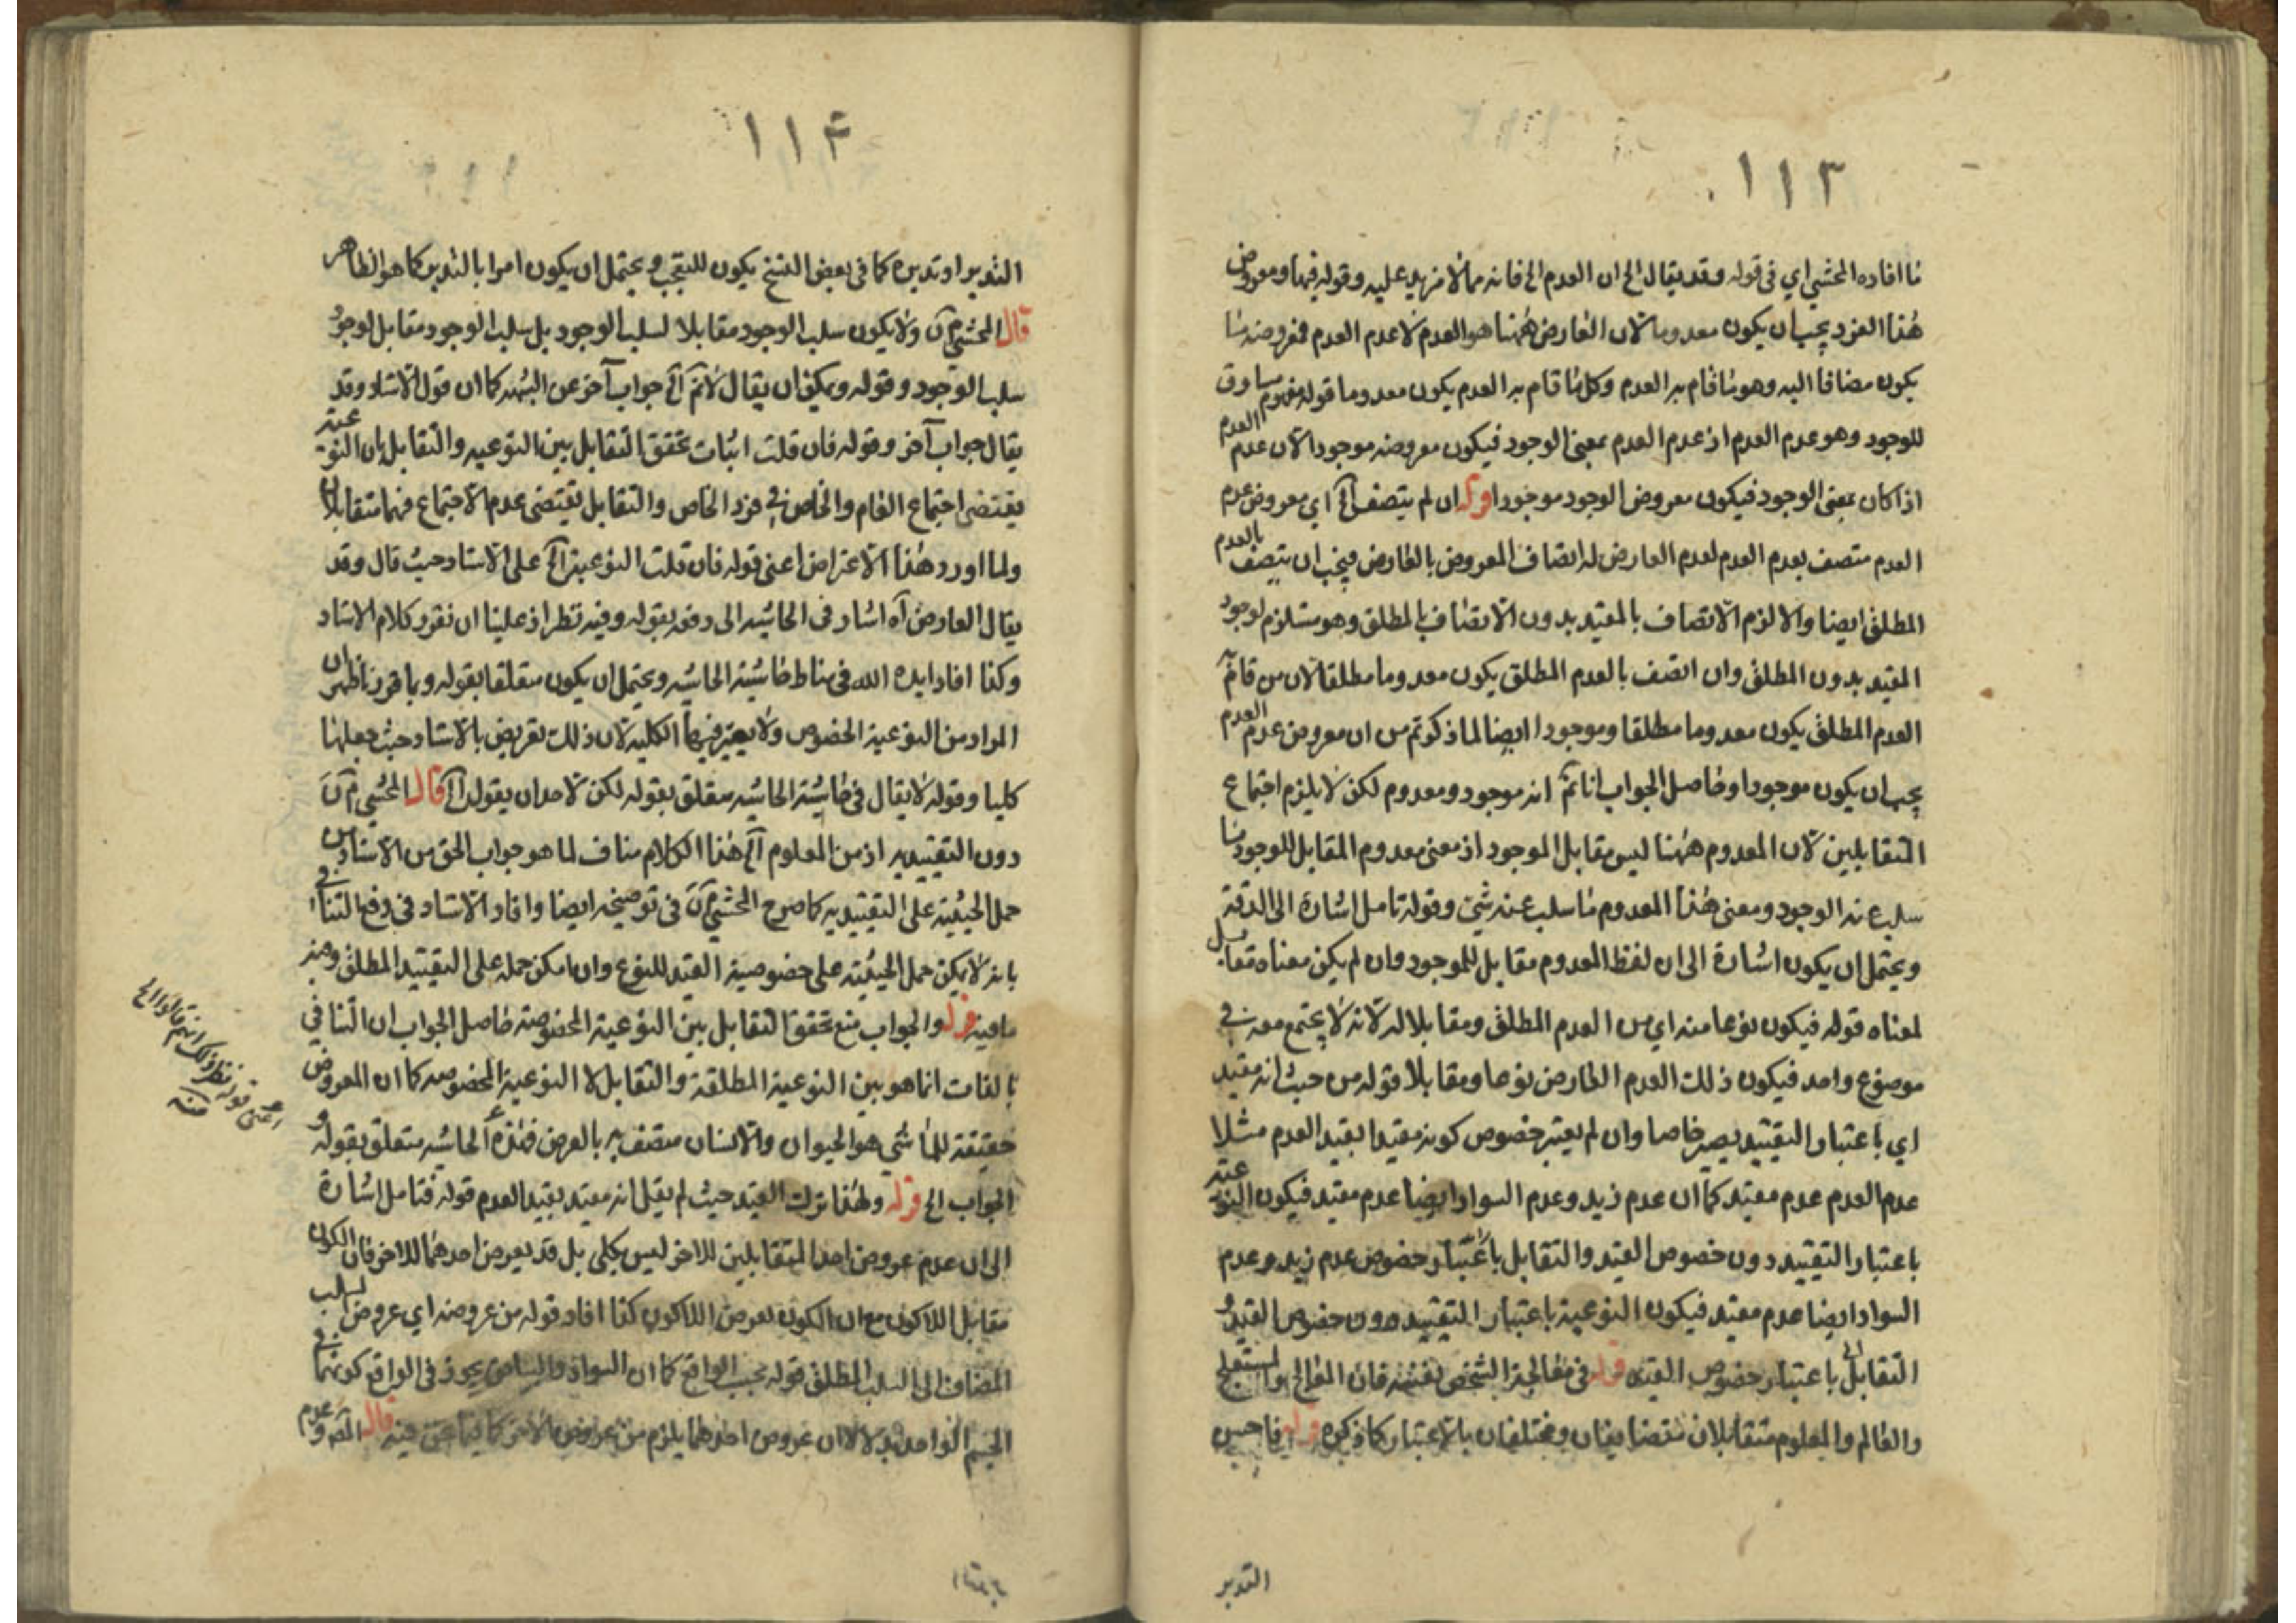 ١١٣
ما افاده المحشي اي في قوله وقد يقال الخ ان العدم الخ فانه مما لا مزيد عليه وقوله فيها ومعروض
هذا الفرد يجب ان يكون معدوما لان العارض ههنا هو العدم لا عدم العدم فمعروضه ما
يكون مضافا اليه وهو ما قام به العدم وكل ما قام به العدم يكون معدوما قوله مفهوم مساوق
للوجود وهو عدم العدم اذ عدم العدم بمعنى الوجود فيكون معروضه موجودا لان عدم العدم
اذا كان بمعنى الوجود فيكون معروض الوجود موجودا قوله ان لم يتصف الخ اي معروض عدم
العدم متصف بعدم العدم لعدم العارض له اتصاف المعروض بالعارض فيجب ان يتصف بالعدم
المطلق ايضا والا لزم الاتصاف بالمقيد بدون الاتصاف بالمطلق وهو مستلزم لوجود
المقيد بدون المطلق وان اتصف بالعدم المطلق يكون معدوما مطلقا لان من قام به
العدم المطلق يكون معدوما مطلقا وموجودا ايضا لما ذكرتم من ان معروض عدم العدم
يجب ان يكون موجودا وحاصل الجواب انا نم انه موجود ومعدوم لكن لا يلزم اجتماع
المتقابلين لان المعدوم ههنا ليس مقابل الموجود اذ معنى معدوم المقابل للوجود ما
سلب عنه الوجود ومعنى هذا المعدوم ما سلب عنه شئ وقوله تامل اشارة الى الدقة
ويحتمل ان يكون اشارة الى ان لفظ المعدوم مقابل للموجود وان لم يكن معناه مقابل
لمعناه قوله فيكون نوعا منه اي من العدم المطلق ومقابلا له لانه لا يجتمع معه في
موضوع واحد فيكون ذلك العدم العارض نوعا ومقابلا قوله من حيث انه مقيد
اي باعتبار التقييد يصير خاصا وان لم يعتبر خصوص كونه مقيدا بقيد العدم مثلا
عدم العدم عدم مقيد كما ان عدم زيد وعدم السواد ايضا عدم مقيد فيكون النوعية
باعتبار التقييد دون خصوص القيد والتقابل باعتبار خصوص عدم زيد وعدم
السواد ايضا عدم مقيد فيكون النوعية باعتبار التقييد دون خصوص القيد و
التقابل باعتبار خصوص القيد قوله في معالجة الشخص نفسه فان المعالج والمستعلج
والعالم والمعلوم متقابلان متضايفان ومختلفان بالاعتبار كما ذكره قوله فاحسن
التدبر
١١٤
التدبر او تدبره كما في بعض النسخ يكون للتعجب ويحتمل ان يكون امرا بالتدبر كما هو الظاهر
قال المحشي م ن ولا يكون سلب الوجود مقابلا لسلب الوجود بل سلب الوجود مقابل لوجود
سلب الوجود وقوله ويمكن ان يقال لانم الخ جواب آخر عن الشبهه كما ان قول الاستاد وقد
يقال جواب آخر وقوله فان قلت اثبات تحقق التقابل بين النوعيه والتقابل بان النوعية
يقتضى اجتماع العام والخاص في فرد الخاص والتقابل يقتضى عدم الاجتماع فهما متقابلان
ولما اورد هذا الاعتراض اعنى قوله فان قلت النوعية الخ على الاستاد حيث قال وقد
يقال العارض آه اشار في الحاشيه الى دفعه بقوله وفيه نظر اذ علينا ان نقرر كلام الاستاد
وكذا افاد ايده الله في مناط حاشية الحاشيه ويحتمل ان يكون متعلقا بقوله وبما قررنا ظهر ان
المراد من النوعية الخصوص ولا يعتبر فيها الكلية لان ذلك تعريض بالاستاد حيث جعلها
كليا وقوله لا يقال في حاشية الحاشيه متعلق بقوله لكن لاحد ان يقول الخ قال المحشي م ن
دون التقييديه اذ من المعلوم الخ هذا الكلام مناف لما هو جواب الحق من الاستاد من
حمل الحيثية على التقييديه كما صرح المحشي م ن في توضيحه ايضا وافاد الاستاد في دفع التنافي
بانه لا يمكن حمل الحيثية على خصوصية القيد للنوع وان امكن حمله على التقييد المطلق وفيه
ما فيه قوله والجواب منع تحقق التقابل بين النوعية المخصوصة حاصل الجواب ان التنافي
بالذات انما هو بين النوعية المطلقة والتقابل لا النوعية المخصوصه كما ان المعروض
حقيقة للماشي هو الحيوان والانسان متصف به بالعرض فهذه الحاشيه متعلق بقوله و
الجواب الخ قوله ولهذا ترك القيد حيث لم يقل انه مقيد بقيد العدم قوله فتامل اشارة
الى ان عدم عروض احد المتقابلين للاخر ليس بكلى بل قد يعرض احدهما للاخر فان الكون
مقابل اللاكون مع ان الكون يعرض اللاكون كذا افاد قوله من عروضه اي عروض السلب
المضاف الى السلب المطلق قوله بحسب الواقع كما ان السواد والبياض يجوز في الواقع كونهما في
الجسم الواحد بدلا لا ان عروض احدهما يلزم من عروض الاخر كما فيما نحن فيه قال المص وعدم
اعنى قوله نظر وذلك انهم قالوا الخ
منه